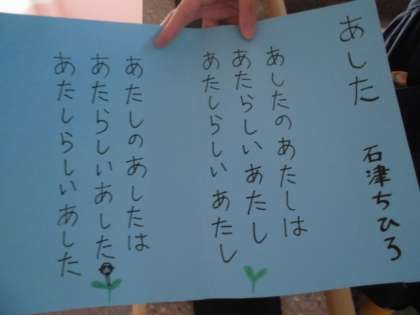 あした
石津ちひろ
あしたのあたしは
あたらしいあたし
あたしらしいあたし
あたしのあしたは
あたらしいあした
あたしらしいあした